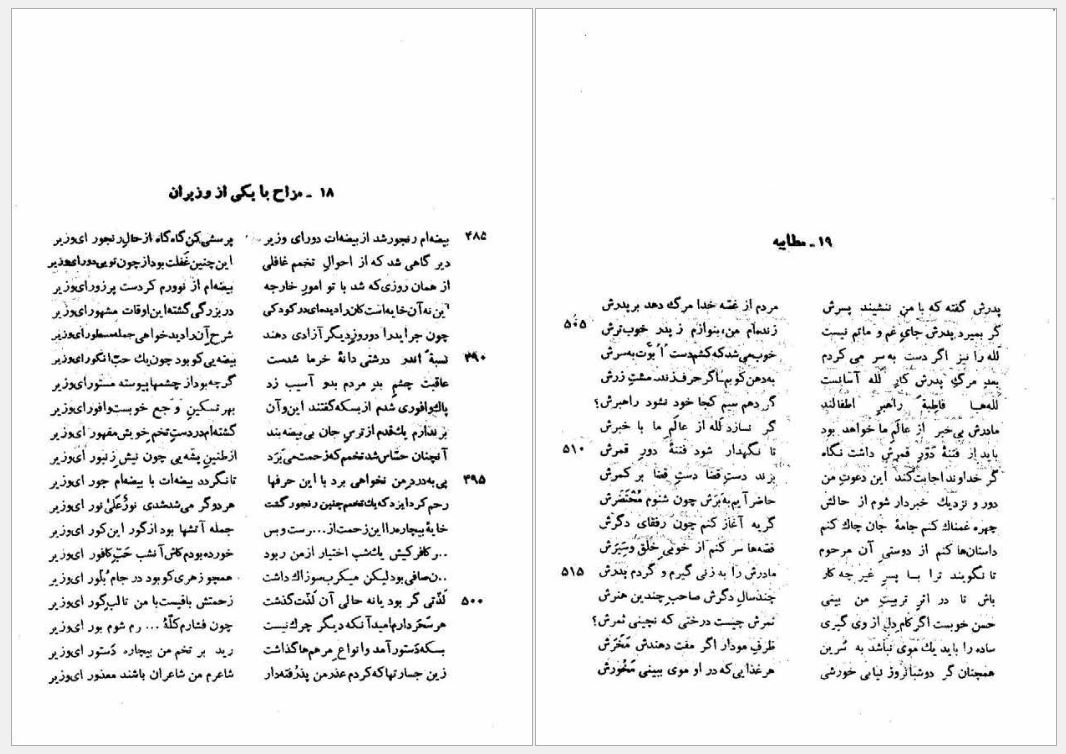 ۱۸ ـ مزاح با یکی از وزیران
۴۸۵ بیضه‌ام رنجور شد از بیضه‌ات دور ای وزیر پرسشی کن گاه گاه از حال رنجور ای وزیر
دیر گاهی شد که از احوال تخمم غافلی این چنین غفلت بود از چون تویی دور ای وزیر
از همان روزی که شد با تو امور خارجه بیضه‌ام از نو ورم کردست پر زور ای وزیر
این نه آن خایه است کان را دیده‌ای در کودکی در بزرگی گشته این اوقات مشهور ای وزیر
چون جرایدرا دو روز دیگر آزادی دهند شرح آن را دید خواهی جمله مسطور ای وزیر
۴۹۰ نسبةً اندر درشتی دانهٔ خرما شدست بیضه‌یی کو بود چون یك حبّ انگور ای وزیر
عاقبت چشم بدِ مردم بدو آسیب زد گرچه بود از چشمها پیوسته مستور ای وزیر
پاك وافوری شدم از بسکه گفتند این و آن بهر تسکین وَجع خوبست وافور ای وزیر
بر ندارم یك قدم از ترس جان بی بیضه بند گشته‌ام در دست تخم خویش مقهور ای وزیر
آنچنان حسّاس شد تخمم که زحمت می‌بَرَد از طنین پشه‌یی چون نیش زنبور ای وزیر
۴۹۵ پی به درد من نخواهی برد با این حرفها تا نگردد بیضه‌ات با بیضه‌ام جور ای وزیر
رحم کرد ایزد که یك تخمم چنین رنجور گشت هردو گر می‌شد شدی نورٌ عَلیٰ نور ای وزیر
خایهٔ بیچاره را این زحمت از ... رست و بس جمله آتشها بود از گور این کور ای وزیر
..ر کافر کیش یك شب اختیار از من ربود خورده بودم کاش آنشب حَبّ کافور ای وزیر
..ن صافی بود لیکن میکرب سوزاك داشت همچو زهری کو بود در جام بلّور ای وزیر
۵۰۰ لذّتی گر بود یا نه حالی آن لذّت گذشت زحمتش باقیست با من تا لب گور ای وزیر
هر سَحَر دارم امید آنکه دیگر چرك نیست چون فشارم کلّهٔ ... رم شوم بور ای وزیر
بسکه دستور آمد و انواع مرهم ها گذاشت رید بر تخم من بیچاره دستور ای وزیر
زین جسارتها که کردم عذر من پذرفته دار شاعرم من شاعران باشند معذور ای وزیر
۱۹ ـ مطایبه
پدرش گفته که با من ننشیند پسرش مردم از غصّه خدا مرگ دهد بر پدرش
۵۰۵ گر بمیرد پدرش جای غم و ماتم نیست زنده‌ام من، بنوازم ز پدر خوب‌ترش
لله را نیز اگر دست به سر می کردم خوب می‌شد که کشم دست اُبُوّت به سرش
بعد مرگ پدرش کار لله آسانست به دهن کوبم اگر حرف زند، مشت زرش
لله‌ها قاطبةً راهبر اطفالند گر دهم سیم کجا خود نشود راهبرش؟
مادرش بی‌خبر از عالَم ما خواهد بود گر نسازد لله از عالم ما با خبرش
۵۱۰ باید از فتنهٔ دَوْرِ قمرش داشت نگاه تا نگهدار شود فتنهٔ دور قمرش
گر خداوند اجابت کند این دعوت من بزند دست قضا دست قضا بر کمرش
دور و نزدیك خبردار شوم از حالش حاضر آیم به بَرَش چون شنوم مُحْتَضَرش
چهره غمناك کنم جامهٔ جان چاك کنم گریه آغاز کنم چون رفقای دگرش
داستان‌ها کنم از دوستی آن مرحوم قصّه‌ها سر کنم از خوبی خلق و سِیَرش
۵۱۵ تا نگویند ترا با پسر غیر چه کار مادرش را به زنی گیرم و گردم پدرش
باش تا در اثر تربیت من بینی چند سال دگرش صاحب چندین هنرش
حسن خوبست اگر کام دل از وی گیری ثمرش چیست درختی که نچینی ثمرش؟
ساده را باید یك موی نباشد به سُرین ظرف مودار اگر مفت دهندش مَخَرش
همچنان گر دو شبانروز نیابی خورشی هر غذایی که در او موی ببینی مَخُورش